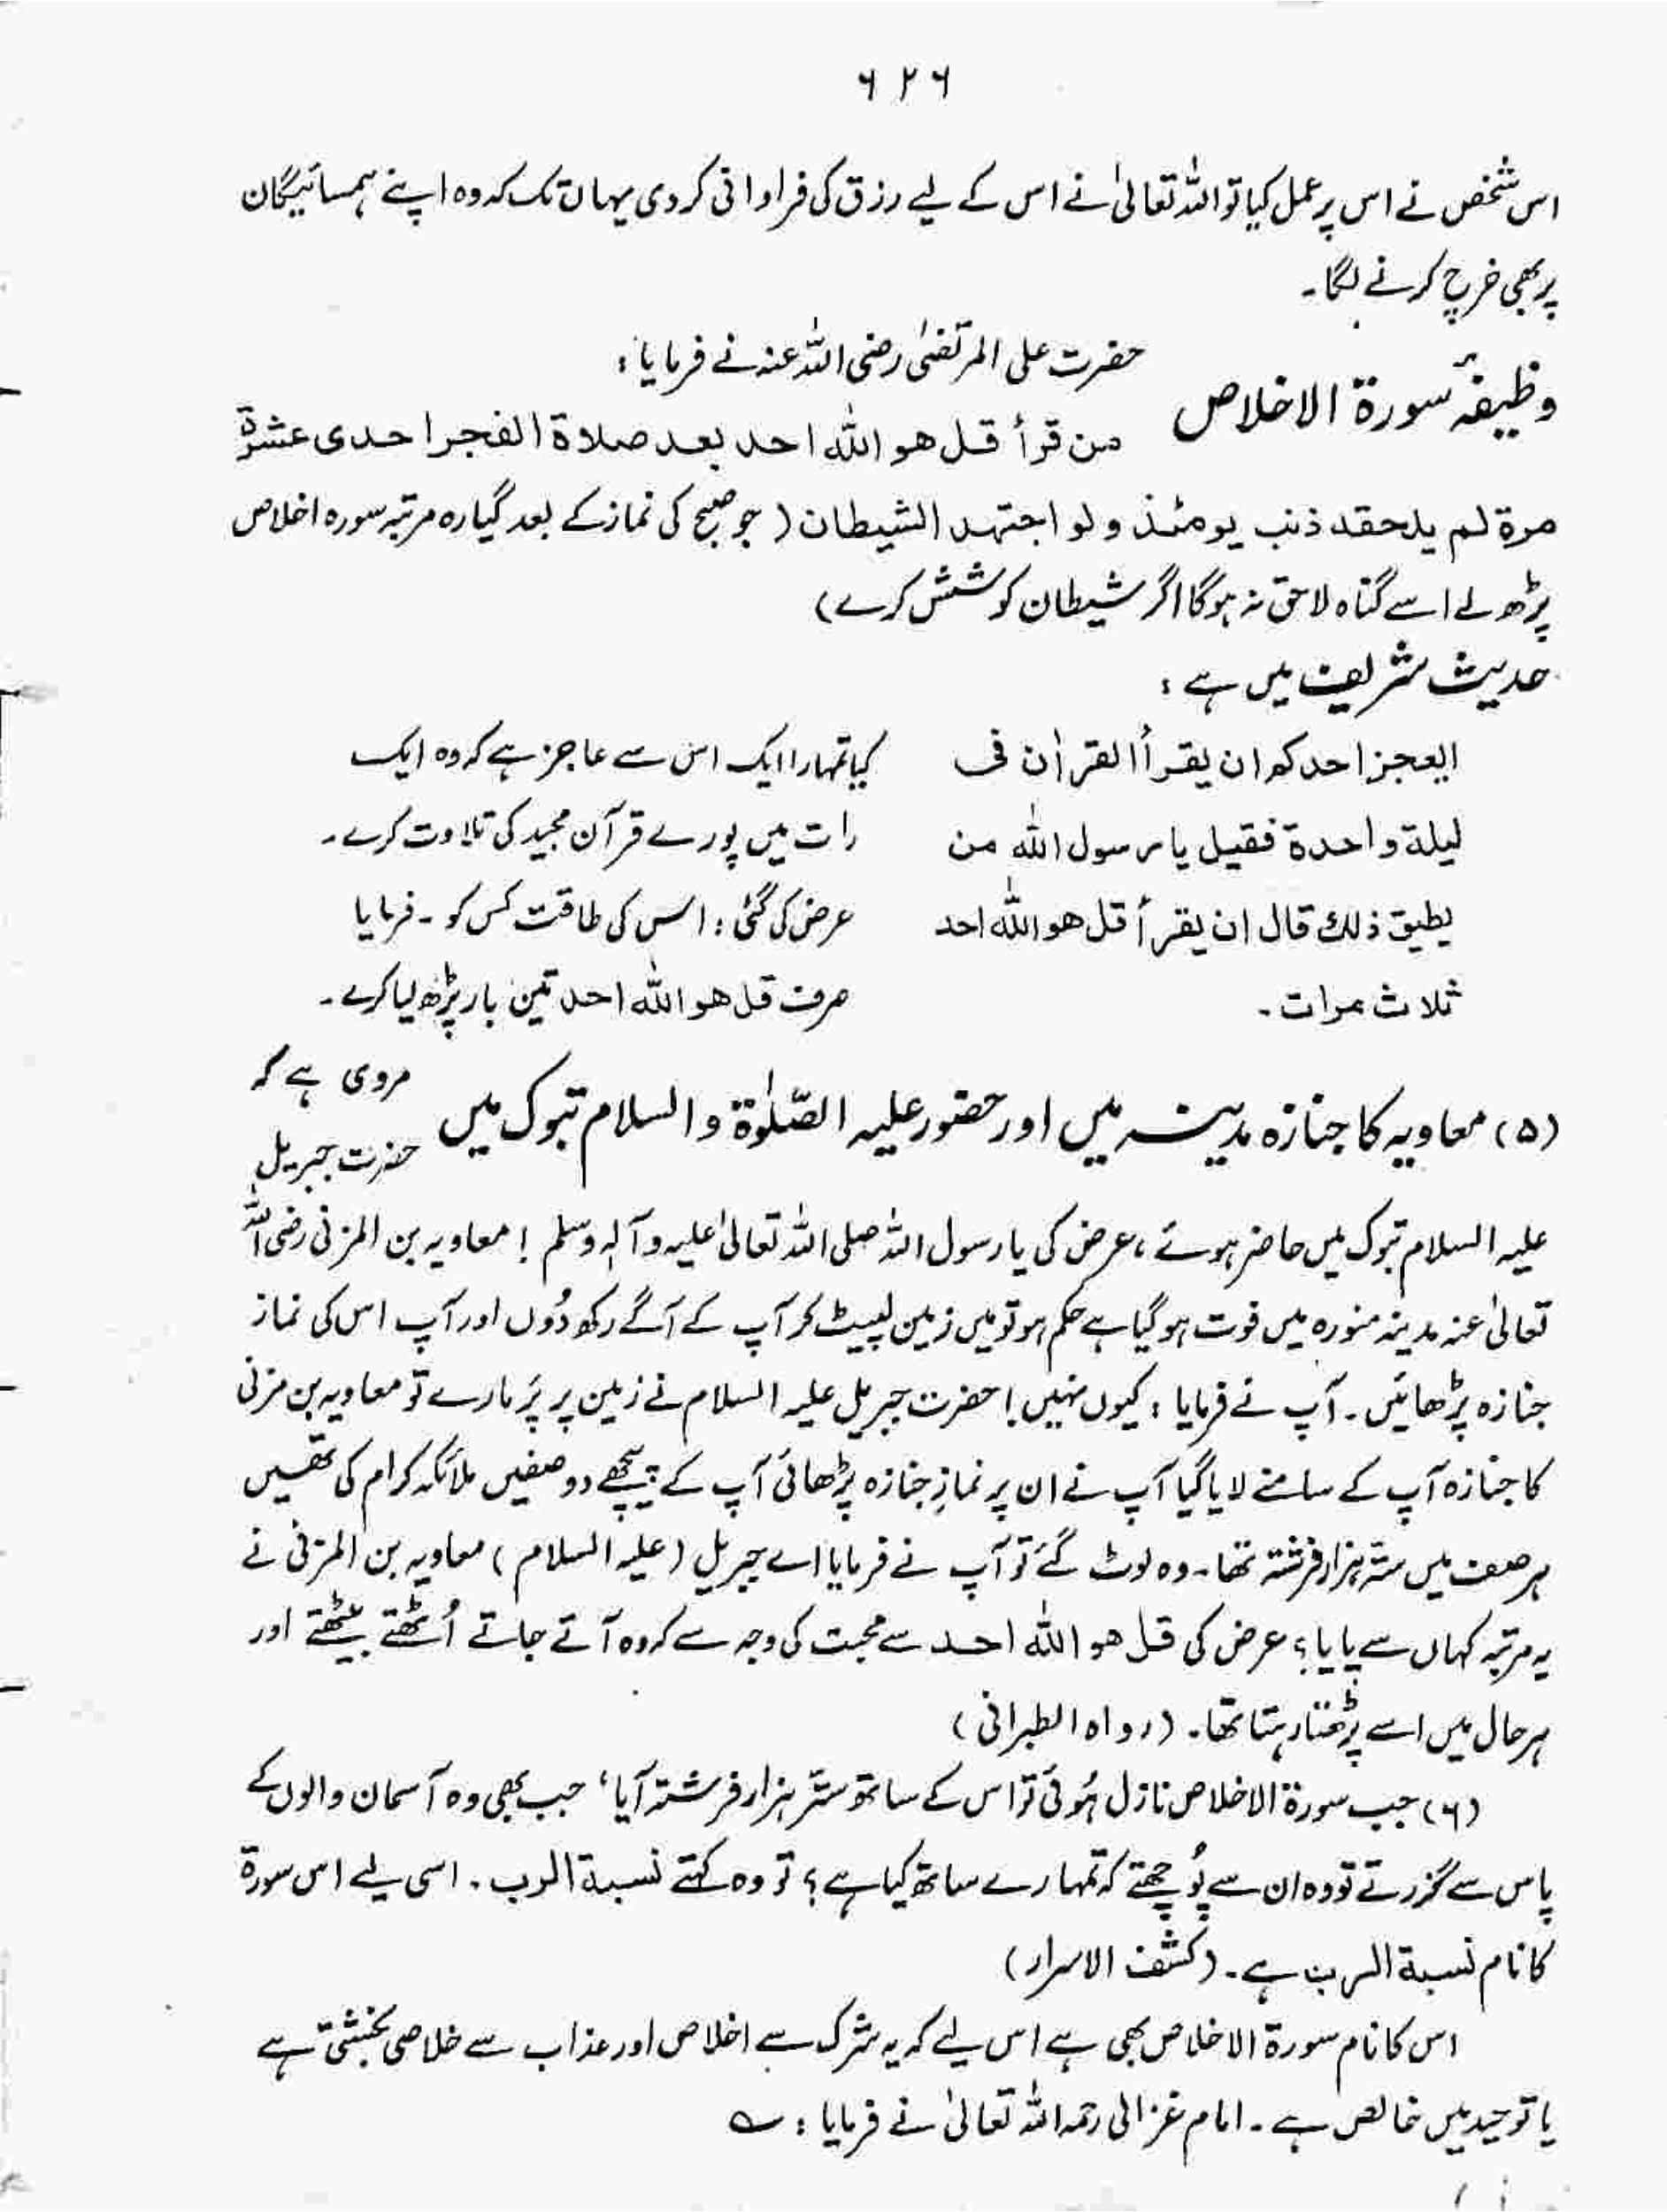 ۶۲۶
اس شخص نے اس پر عمل کیا تو اللہ تعالیٰ نے اس کے لیے رزق کی فراوانی کر دی یہاں تک کہ وہ اپنے ہمسائیگان
پر بھی خرچ کرنے لگا۔
وظیفہٴ سورۃ الاخلاص
حضرت علی المرتضیٰ رضی اللہ عنہ نے فرمایا :
من قرأ قل ھو اللہ احد بعد صلاۃ الفجر احدی عشرۃ
مرۃ لم یلحقہ ذنب یومئذ ولو اجتھد الشیطان (جو صبح کی نماز کے بعد گیارہ مرتبہ سورہ اخلاص
پڑھ لے اسے گناہ لاحق نہ ہوگا اگر شیطان کوشش کرے)
حدیث شریف میں ہے :
ایعجز احدکم ان یقرأ القراٰن فی
لیلۃ واحدۃ فقیل یا رسول اللہ من
یطیق ذلك قال ان یقرأ قل ھو اللہ احد
ثلاث مرات ۔
کیا تمہارا ایک اس سے عاجز ہے کہ وہ ایک
رات میں پورے قرآن مجید کی تلاوت کرے۔
عرض کی گئی : اس کی طاقت کس کو ۔ فرمایا
صرف قل ھو اللہ احد تین بار پڑھ لیا کرے۔
(۵) معاویہ کا جنازہ مدینہ میں اور حضور علیہ الصّلوٰۃ والسلام تبوک میں
مروی ہے کہ
حضرت جبریل
علیہ السلام تبوک میں حاضر ہوئے، عرض کی یا رسول اللہ صلی اللہ تعالیٰ علیہ وآلہٖ وسلم ! معاویہ بن المزنی رضی اللہ
تعالیٰ عنہ مدینہ منورہ میں فوت ہوگیا ہے حکم ہو تو میں زمین لپیٹ کر آپ کے آگے رکھ دُوں اور آپ اس کی نماز
جنازہ پڑھائیں۔ آپ نے فرمایا : کیوں نہیں ! حضرت جبریل علیہ السلام نے زمین پر پَر مارے تو معاویہ بن مزنی
کا جنازہ آپ کے سامنے لایا گیا آپ نے ان پر نمازِ جنازہ پڑھائی آپ کے پیچھے دو صفیں ملائکہ کرام کی تھیں
ہر صف میں ستّر ہزار فرشتہ تھا۔ وہ لوٹ گئے تو آپ نے فرمایا اے جبریل (علیہ السلام) معاویہ بن المزنی نے
یہ مرتبہ کہاں سے پایا؟ عرض کی قل ھو اللہ احد سے محبت کی وجہ سے کہ وہ آتے جاتے اُٹھتے بیٹھتے اور
ہر حال میں اسے پڑھتا رہتا تھا۔ (رواہ الطبرانی)
(۶) جب سورۃ الاخلاص نازل ہُوئی تو اس کے ساتھ ستّر ہزار فرشتہ آیا، جب بھی وہ آسمان والوں کے
پاس سے گزرتے تو وہ ان سے پُوچھتے کہ تمہارے ساتھ کیا ہے؟ تو وہ کہتے نسبۃ الرب ۔ اسی لیے اس سورۃ
کا نام نسبۃ الرب ہے۔ (کشف الاسرار)
اس کا نام سورۃ الاخلاص بھی ہے اس لیے کہ یہ شرک سے اخلاص اور عذاب سے خلاصی بخشتی ہے
یا توحید میں خالص ہے۔ امام غزالی رحمہ اللہ تعالیٰ نے فرمایا : ؎